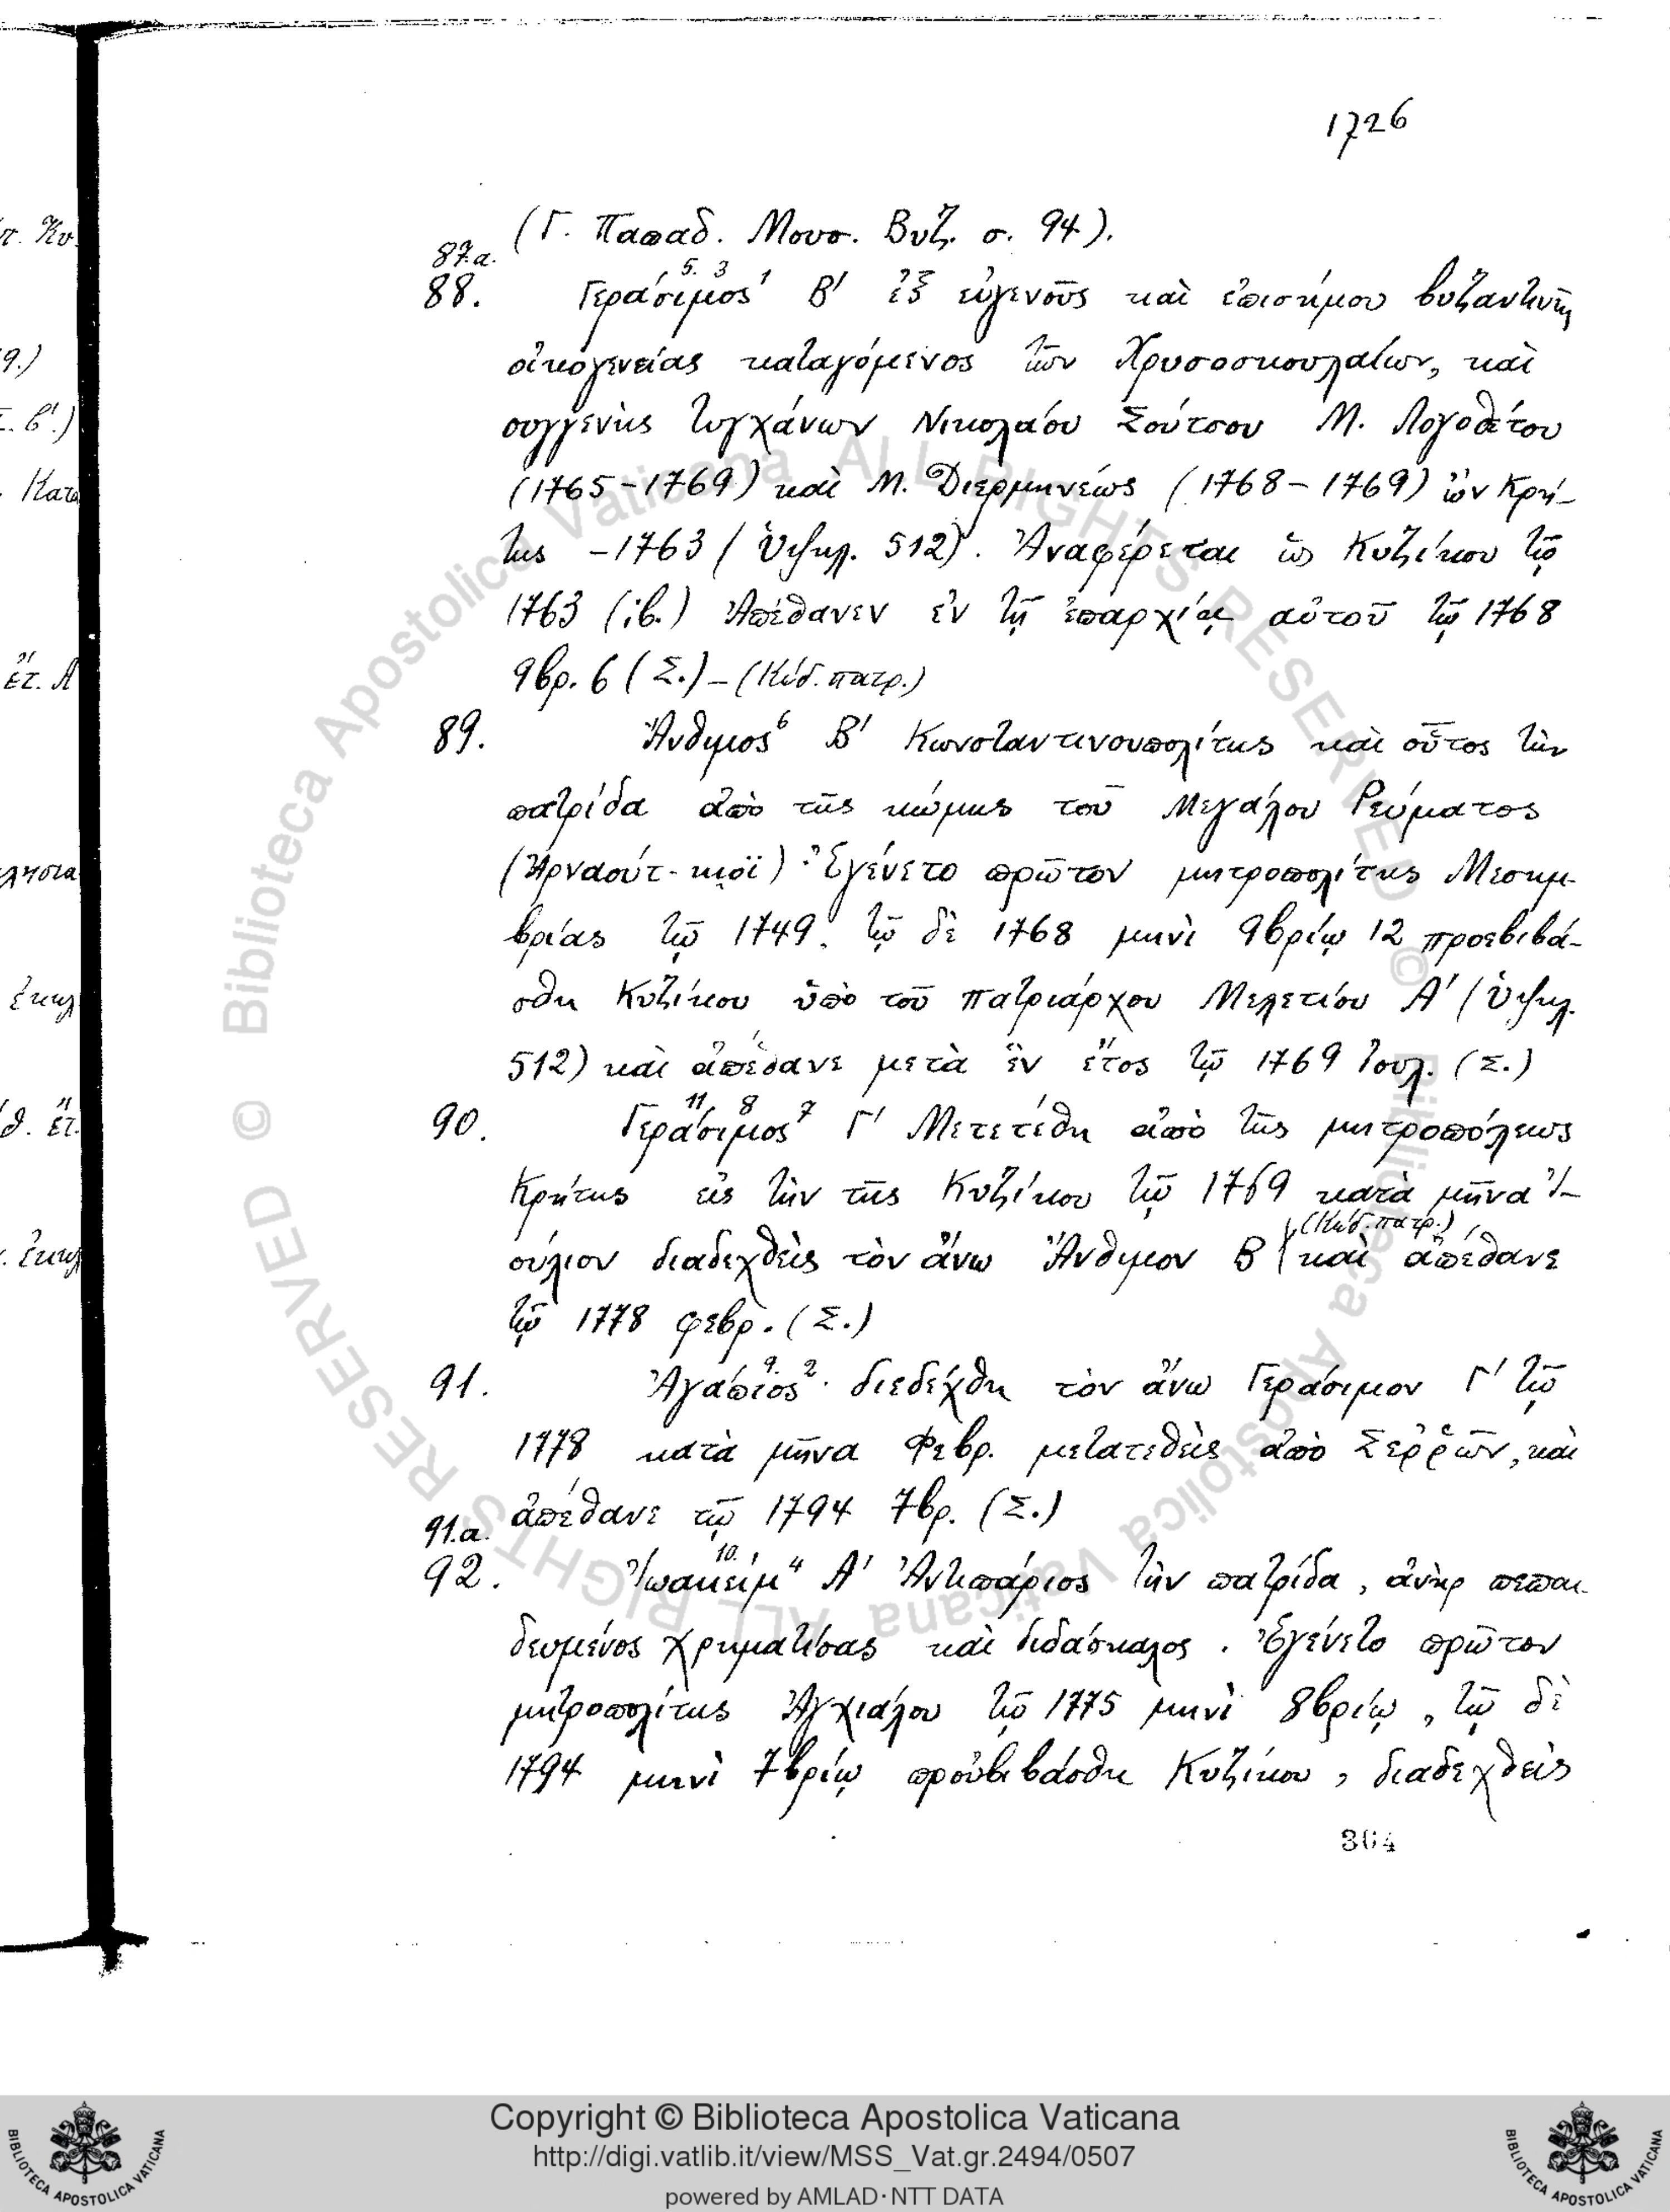 1726
(Γ. Παπαδ. Μουσ. Βυζ. σ. 94).
87.α.
5. 3
88. Γεράσιμος¹ Β' ἐξ εὐγενοῦς καὶ ἐπισήμου βυζαντινῆς
οἰκογενείας καταγόμενος τῶν Χρυσοσκουλαίων, καὶ
συγγενὴς τυγχάνων Νικολάου Σούτσου Μ. Λογοθέτου
(1765-1769) καὶ Μ. Διερμηνέως (1768-1769) ὢν Κρή-
της -1763 (Ὑψηλ. 512). Ἀναφέρεται ὡς Κυζίκου τῷ
1763 (ἰβ.) Ἀπέθανεν ἐν τῇ ἐπαρχίᾳ αὐτοῦ τῷ 1768
9βρ. 6 (Σ.) - (Κώδ. πατρ.)
89. Ἄνθιμος⁶ Β' Κωνσταντινουπολίτης καὶ οὗτος τὴν
πατρίδα ἀπὸ τῆς κώμης τοῦ Μεγάλου Ρεύματος
(Ἀρναούτ-κιοϊ) Ἐγένετο πρῶτον μητροπολίτης Μεσημ-
βρίας τῷ 1749. τῷ δὲ 1768 μηνὶ 9βρίῳ 12 προεβιβά-
σθη Κυζίκου ὑπὸ τοῦ πατριάρχου Μελετίου Α' (Ὑψηλ.
512) καὶ ἀπέθανε μετὰ ἓν ἔτος τῷ 1769 Ἰουλ. (Σ.)
11. 8
90. Γεράσιμος⁷ Γ' Μετετέθη ἀπὸ τῆς μητροπόλεως
Κρήτης εἰς τὴν τῆς Κυζίκου τῷ 1769 κατὰ μῆνα Ἰ-
(Κώδ. πατρ.)
ούλιον διαδεχθεὶς τὸν ἄνω Ἄνθιμον Β' καὶ ἀπέθανε
τῷ 1778 φεβρ. (Σ.)
9.
91. Ἀγάπιος² διεδέχθη τὸν ἄνω Γεράσιμον Γ' τῷ
1778 κατὰ μῆνα Φεβρ. μετατεθεὶς ἀπὸ Σεῤῥῶν, καὶ
ἀπέθανε τῷ 1794 7βρ. (Σ.)
91.α.
10.
92. Ἰωακείμ⁴ Α' Ἀντιπάριος τὴν πατρίδα, ἀνὴρ πεπαι-
δευμένος χρηματίσας καὶ διδάσκαλος. Ἐγένετο πρῶτον
μητροπολίτης Ἀγχιάλου τῷ 1775 μηνὶ 8βρίῳ, τῷ δὲ
1794 μηνὶ 7βρίῳ προὐβιβάσθη Κυζίκου, διαδεχθεὶς
364
© Biblioteca Apostolica Vaticana ALL RIGHTS RESERVED
© Biblioteca Apostolica Vaticana ALL RIGHTS RESERVED
Copyright © Biblioteca Apostolica Vaticana
http://digi.vatlib.it/view/MSS_Vat.gr.2494/0507
powered by AMLAD·NTT DATA
BIBLIOTECA APOSTOLICA VATICANA
BIBLIOTECA APOSTOLICA VATICANA